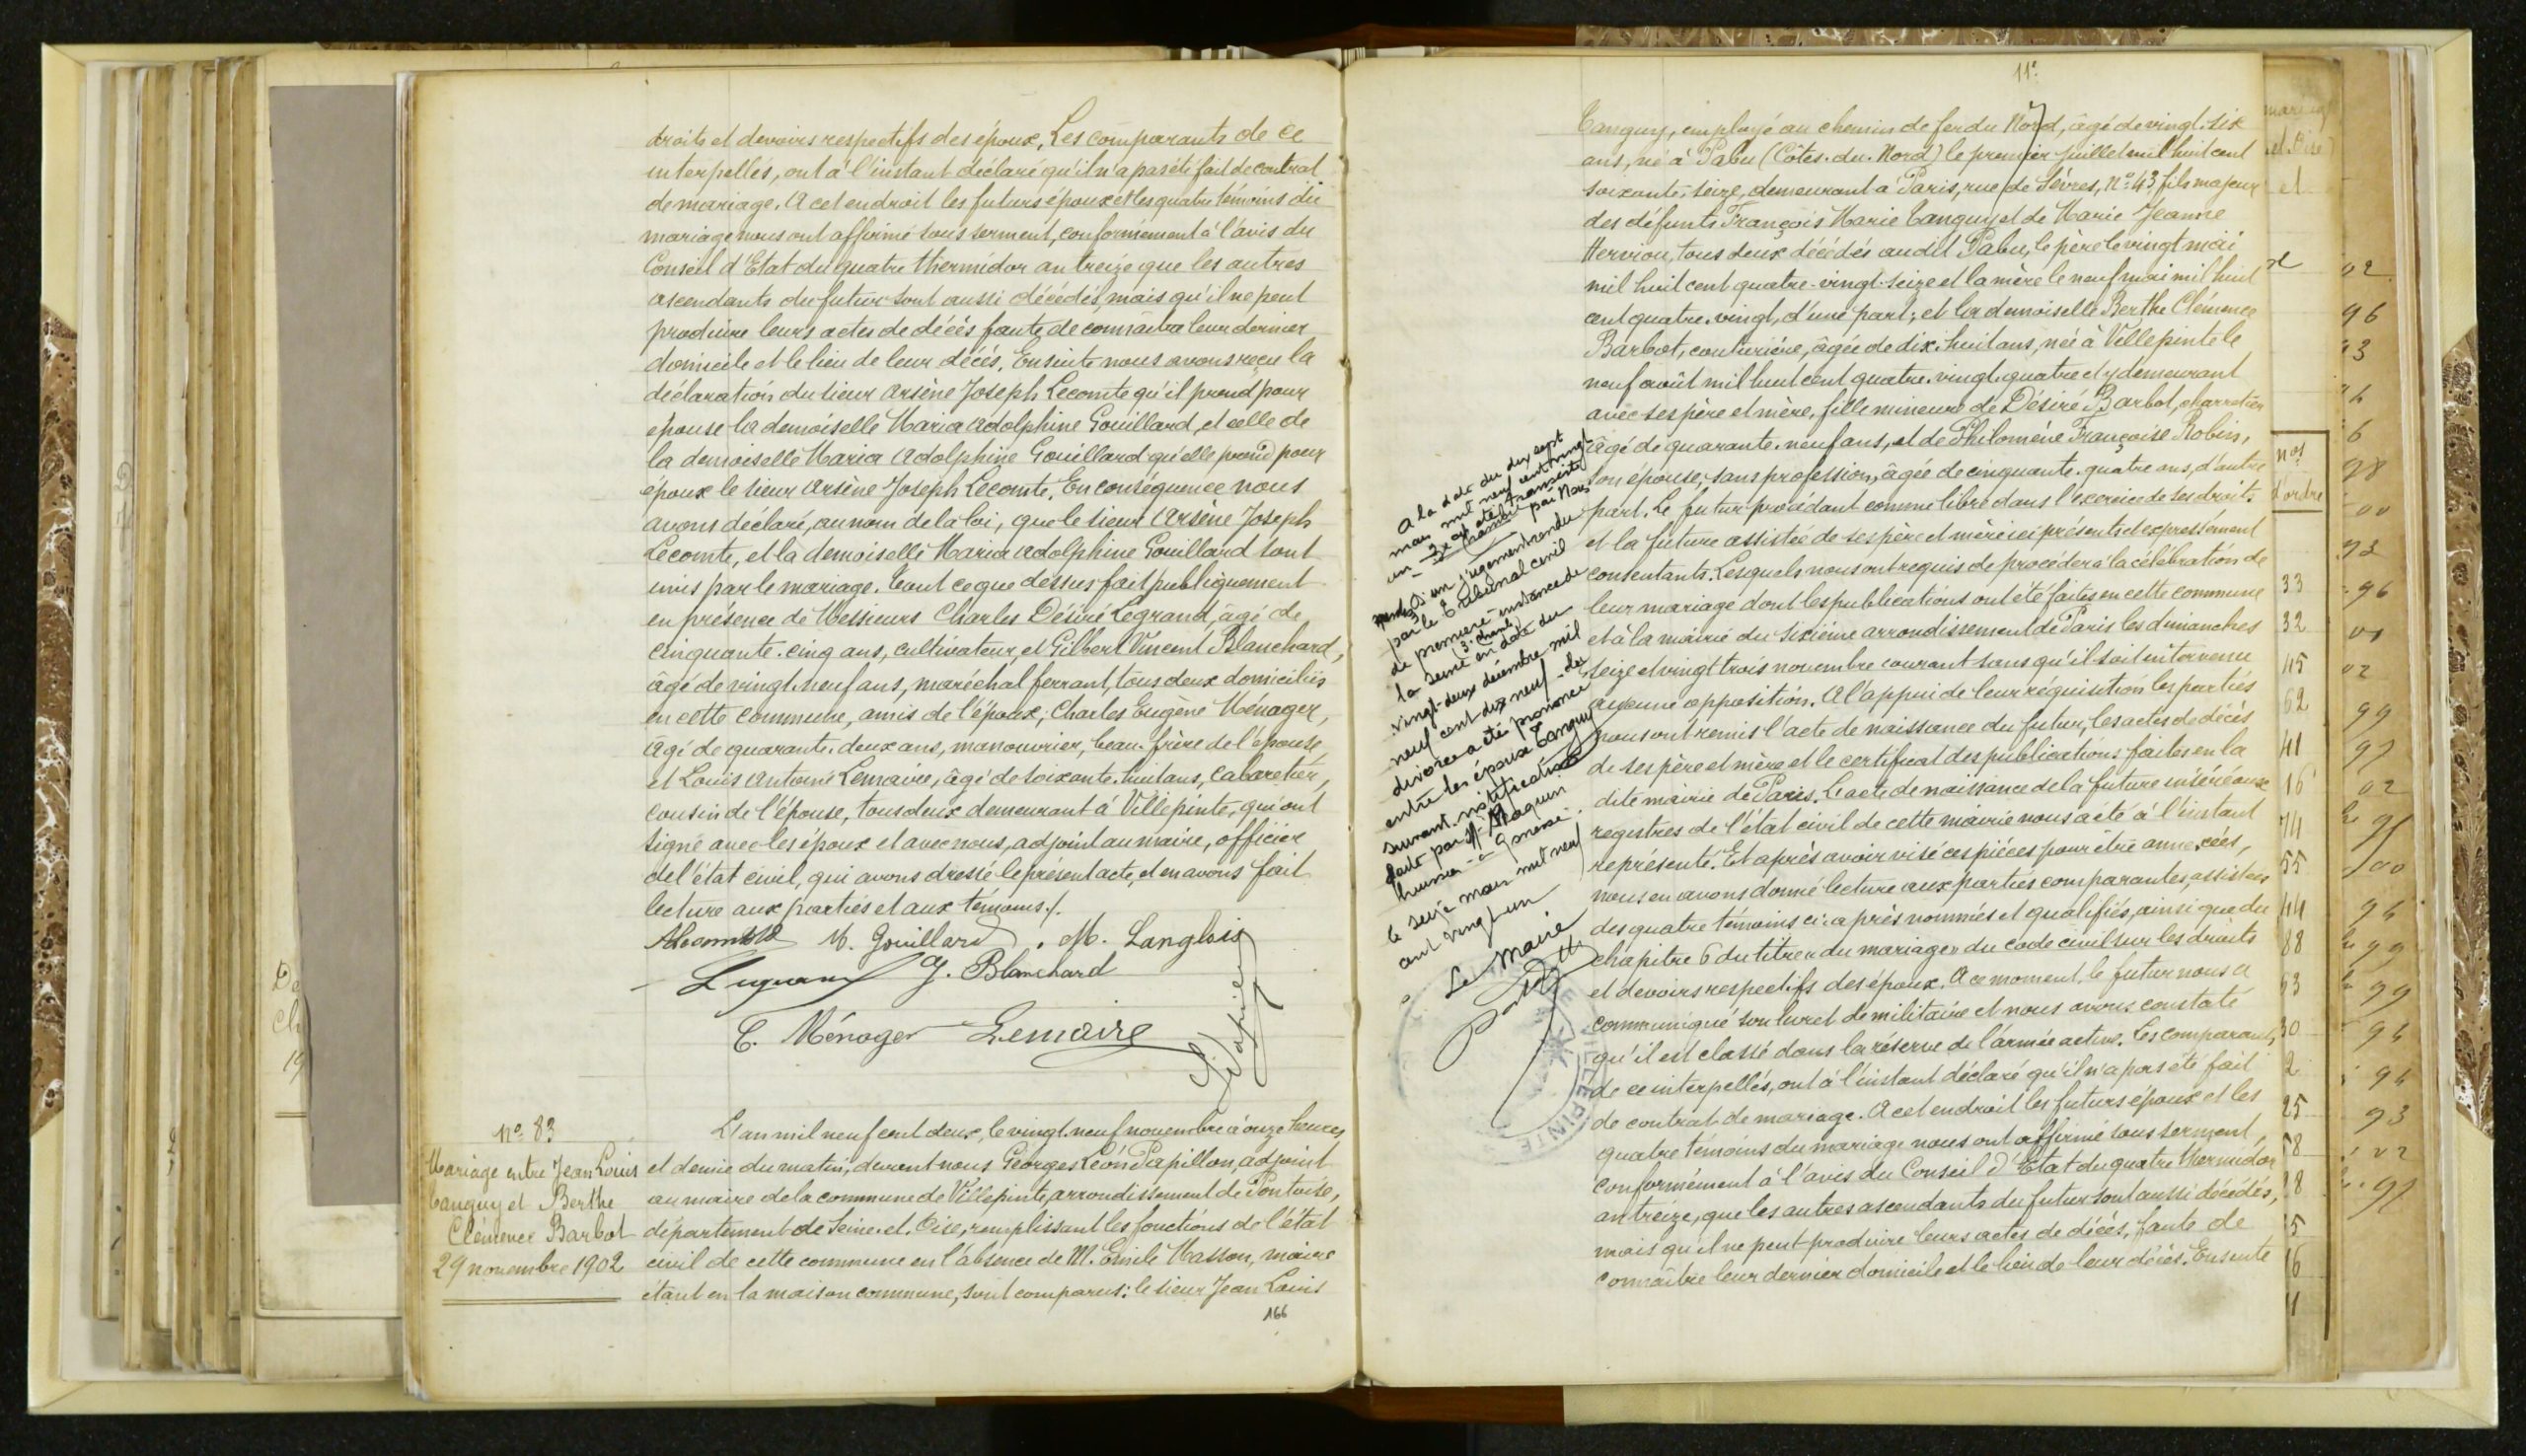 droits et devoirs respectifs des époux. Les comparants de ce
interpellés, ont à l'instant déclaré qu'il n'a pas été fait de contrat
de mariage. A cet endroit les futurs époux et les quatre témoins du
mariage nous ont affirmé sous serment, conformément à l'avis du
Conseil d'Etat du quatre thermidor an treize que les autres
ascendants du futur sont aussi décédés, mais qu'il ne peut
produire leurs actes de décès faute de connaître leur dernier
domicile et le lieu de leur décès. Ensuite nous avons reçu la
déclaration du sieur Arsène Joseph Lecomte qu'il prend pour
épouse la demoiselle Maria Adolphine Gouillard, et celle de
la demoiselle Maria Adolphine Gouillard qu'elle prend pour
époux le sieur Arsène Joseph Lecomte. En conséquence nous
avons déclaré, au nom de la loi, que le sieur Arsène Joseph
Lecomte, et la demoiselle Maria Adolphine Gouillard sont
unis par le mariage. Tout ce que dessus fait publiquement
en présence de Messieurs Charles Désiré Legrand, âgé de
cinquante-cinq ans, cultivateur, et Gilbert Vincent Blanchard,
âgé de vingt-neuf ans, maréchal ferrant, tous deux domiciliés
en cette commune, amis de l'époux; Charles Eugène Ménager,
âgé de quarante-deux ans, manouvrier, beau-frère de l'épouse
et Louis Antoine Lemaire, âgé de soixante-huit ans, cabaretier,
cousin de l'épouse, tous deux demeurant à Villepinte, qui ont
signé avec les époux et avec nous, adjoint au maire, officier
de l'état civil, qui avons dressé le présent acte, et en avons fait
lecture aux parties et aux témoins./.
M. Gouillard. M. Langlois
G. Blanchard
E. Ménager Lemaire
N° 83
Mariage entre Jean Louis
Tanguy et Berthe
Clémence Barbot
29 novembre 1902
L'an mil neuf cent deux, le vingt-neuf novembre à onze heures
et demie du matin, devant nous Georges Léon Papillon, adjoint
au maire de la commune de Villepinte, arrondissement de Pontoise,
département de Seine-et-Oise, remplissant les fonctions de l'état
civil de cette commune en l'absence de M. Emile Masson, maire
étant en la maison commune, sont comparus: le sieur Jean Louis
166
Tanguy, employé au chemin de fer du Nord, âgé de vingt-six
ans, né à Pabu (Côtes-du-Nord) le premier juillet mil huit cent
soixante-seize, demeurant à Paris, rue de Sèvres, N° 43, fils majeur
des défunts François Marie Tanguy et de Marie Jeanne
Herviou, tous deux décédés audit Pabu, le père le vingt mai
mil huit cent quatre-vingt-seize et la mère le neuf mai mil huit
cent quatre-vingt, d'une part; et la demoiselle Berthe Clémence
Barbot, couturière, âgée de dix-huit ans, née à Villepinte le
neuf août mil huit cent quatre-vingt-quatre et y demeurant
avec ses père et mère, fille mineure de Désiré Barbot, charretier
âgé de quarante-neuf ans, et de Philomène Françoise Robin,
son épouse, sans profession, âgée de cinquante-quatre ans, d'autre
part. Le futur procédant comme libre dans l'exercice de ses droits
et la future assistée de ses père et mère ici présents et expressément
consentants. Lesquels nous ont requis de procéder à la célébration de
leur mariage dont les publications ont été faites en cette commune
et à la mairie du sixième arrondissement de Paris les dimanches
seize et vingt trois novembre courant sans qu'il soit intervenu
aucune opposition. A l'appui de leur réquisition les parties
nous ont remis l'acte de naissance du futur, les actes de décès
de ses père et mère et le certificat des publications faites en la
dite mairie de Paris. L'acte de naissance de la future inséré aux
registres de l'état civil de cette mairie nous a été à l'instant
représenté. Et après avoir visé ces pièces pour être annexées,
nous en avons donné lecture aux parties comparantes, assistées
des quatre témoins ci-après nommés et qualifiés, ainsi que du
chapitre 6 du titre « du mariage » du code civil sur les droits
et devoirs respectifs des époux. A ce moment le futur nous a
communiqué son livret de militaire et nous avons constaté
qu'il est classé dans la réserve de l'armée active. Les comparants,
de ce interpellés, ont à l'instant déclaré qu'il n'a pas été fait
de contrat de mariage. A cet endroit les futurs époux et les
quatre témoins du mariage nous ont affirmé sous serment,
conformément à l'avis du Conseil d'Etat du quatre thermidor
an treize, que les autres ascendants du futur sont aussi décédés,
mais qu'il ne peut produire leurs actes de décès, faute de
connaître leur dernier domicile et le lieu de leur décès. Ensuite
A la date du dix sept
mars mil neuf cent vingt
un a été transcrit
par Nous
d'un jugement rendu
par le Tribunal civil
de première instance de
la Seine (3e chambre) en date du
vingt-deux décembre mil
neuf cent dix neuf - le
divorce a été prononcé
entre les époux Tanguy
suivant notification
faite par Me Maquin
huissier à Gonesse
le seize mars mil neuf
cent vingt-un
Le Maire
nos
d'ordre
33
32
45
62
41
16
74
55
44
88
63
30
2
25